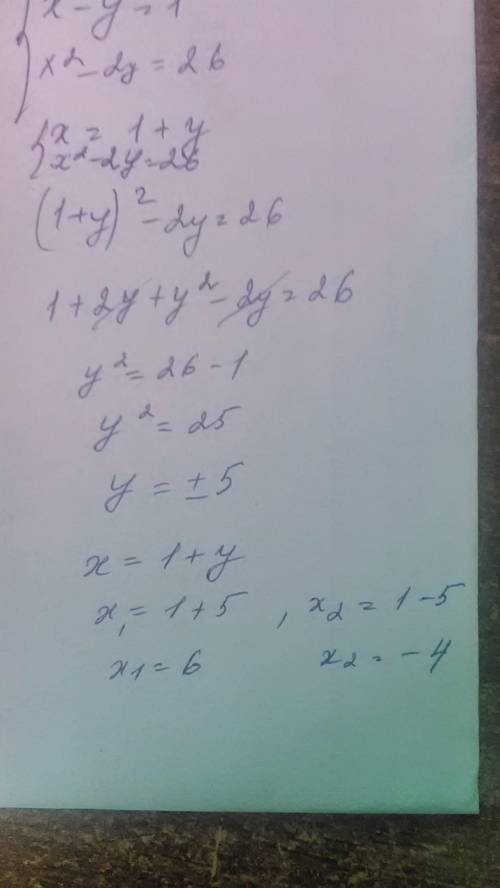 x - y = 1
x² - 2y = 26
x = 1 + y
x² - 2y = 26
(1+y)² - 2y = 26
1 + 2y + y² - 2y = 26
y² = 26 - 1
y² = 25
y = ± 5
x = 1 + y
x₁ = 1 + 5 , x₂ = 1 - 5
x₁ = 6 x₂ = - 4